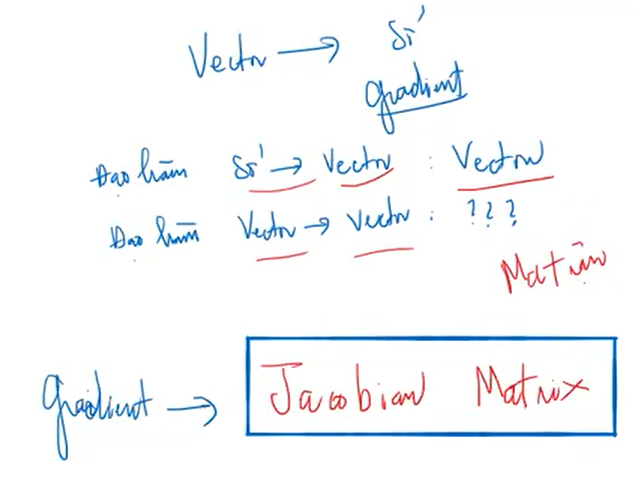 Vector → Số
gradient
Đạo hàm Số → Vector : Vector
Đạo hàm Vector → Vector : ???
Ma trận
gradient → Jacobian Matrix